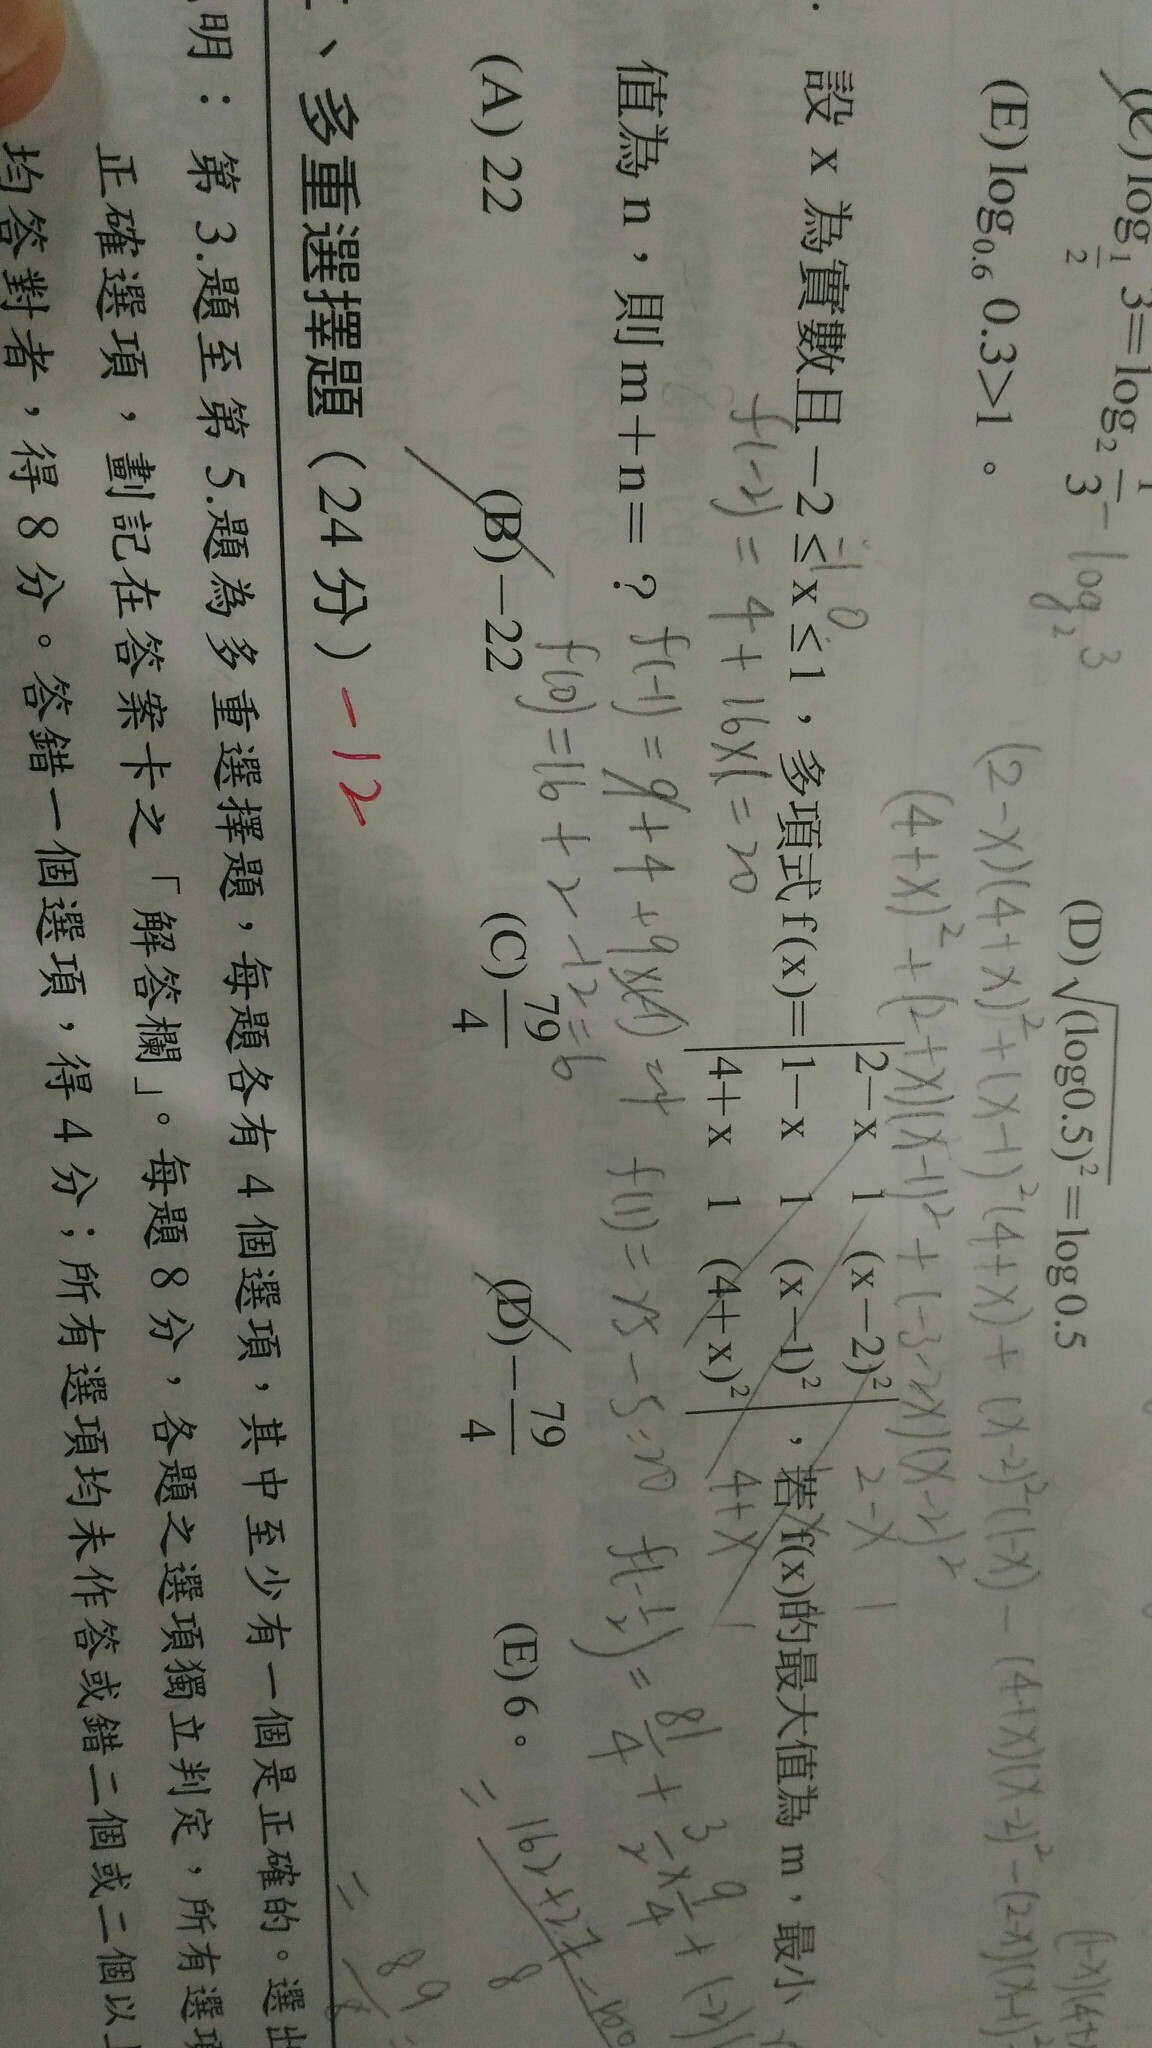 (C) log_{1/2} 3 = log_2 1/3 - log_2 3
(D) √(log0.5)² = log0.5
(E) log_{0.6} 0.3 > 1 。
(2-x)(4+x)²+(x-1)²(4+x)+(x-2)²(1-x)-(4+x)(x-2)²-(2-x)(x-1)²
(4+x)²+(2+x)(x-1)²+(-3-2x)(x-2)²
設 x 為實數且 -2 ≤ x ≤ 1，多項式 f(x)= | 2-x 1 (x-2)² |
| 1-x 1 (x-1)² |
| 4+x 1 (4+x)² | ，若 f(x)的最大值為 m，最小
-1 0
2-x 1
4+x 1
f(-2) = 4 + 16x1 = 20
值為 n，則 m+n= ？
f(1) = 25 - 5 = 20
f(0) = 16 + 2 - 12 = 6
(A) 22
(B) -22
(C) 79/4
(D) - 79/4
(E) 6 。
、多重選擇題 (24 分)
-12
明：第 3.題至第 5.題為多重選擇題，每題各有 4 個選項，其中至少有一個是正確的。選出
正確選項，劃記在答案卡之「解答欄」。每題 8 分，各題之選項獨立判定，所有選項
均答對者，得 8 分。答錯一個選項，得 4 分；所有選項均未作答或錯二個或二個以上